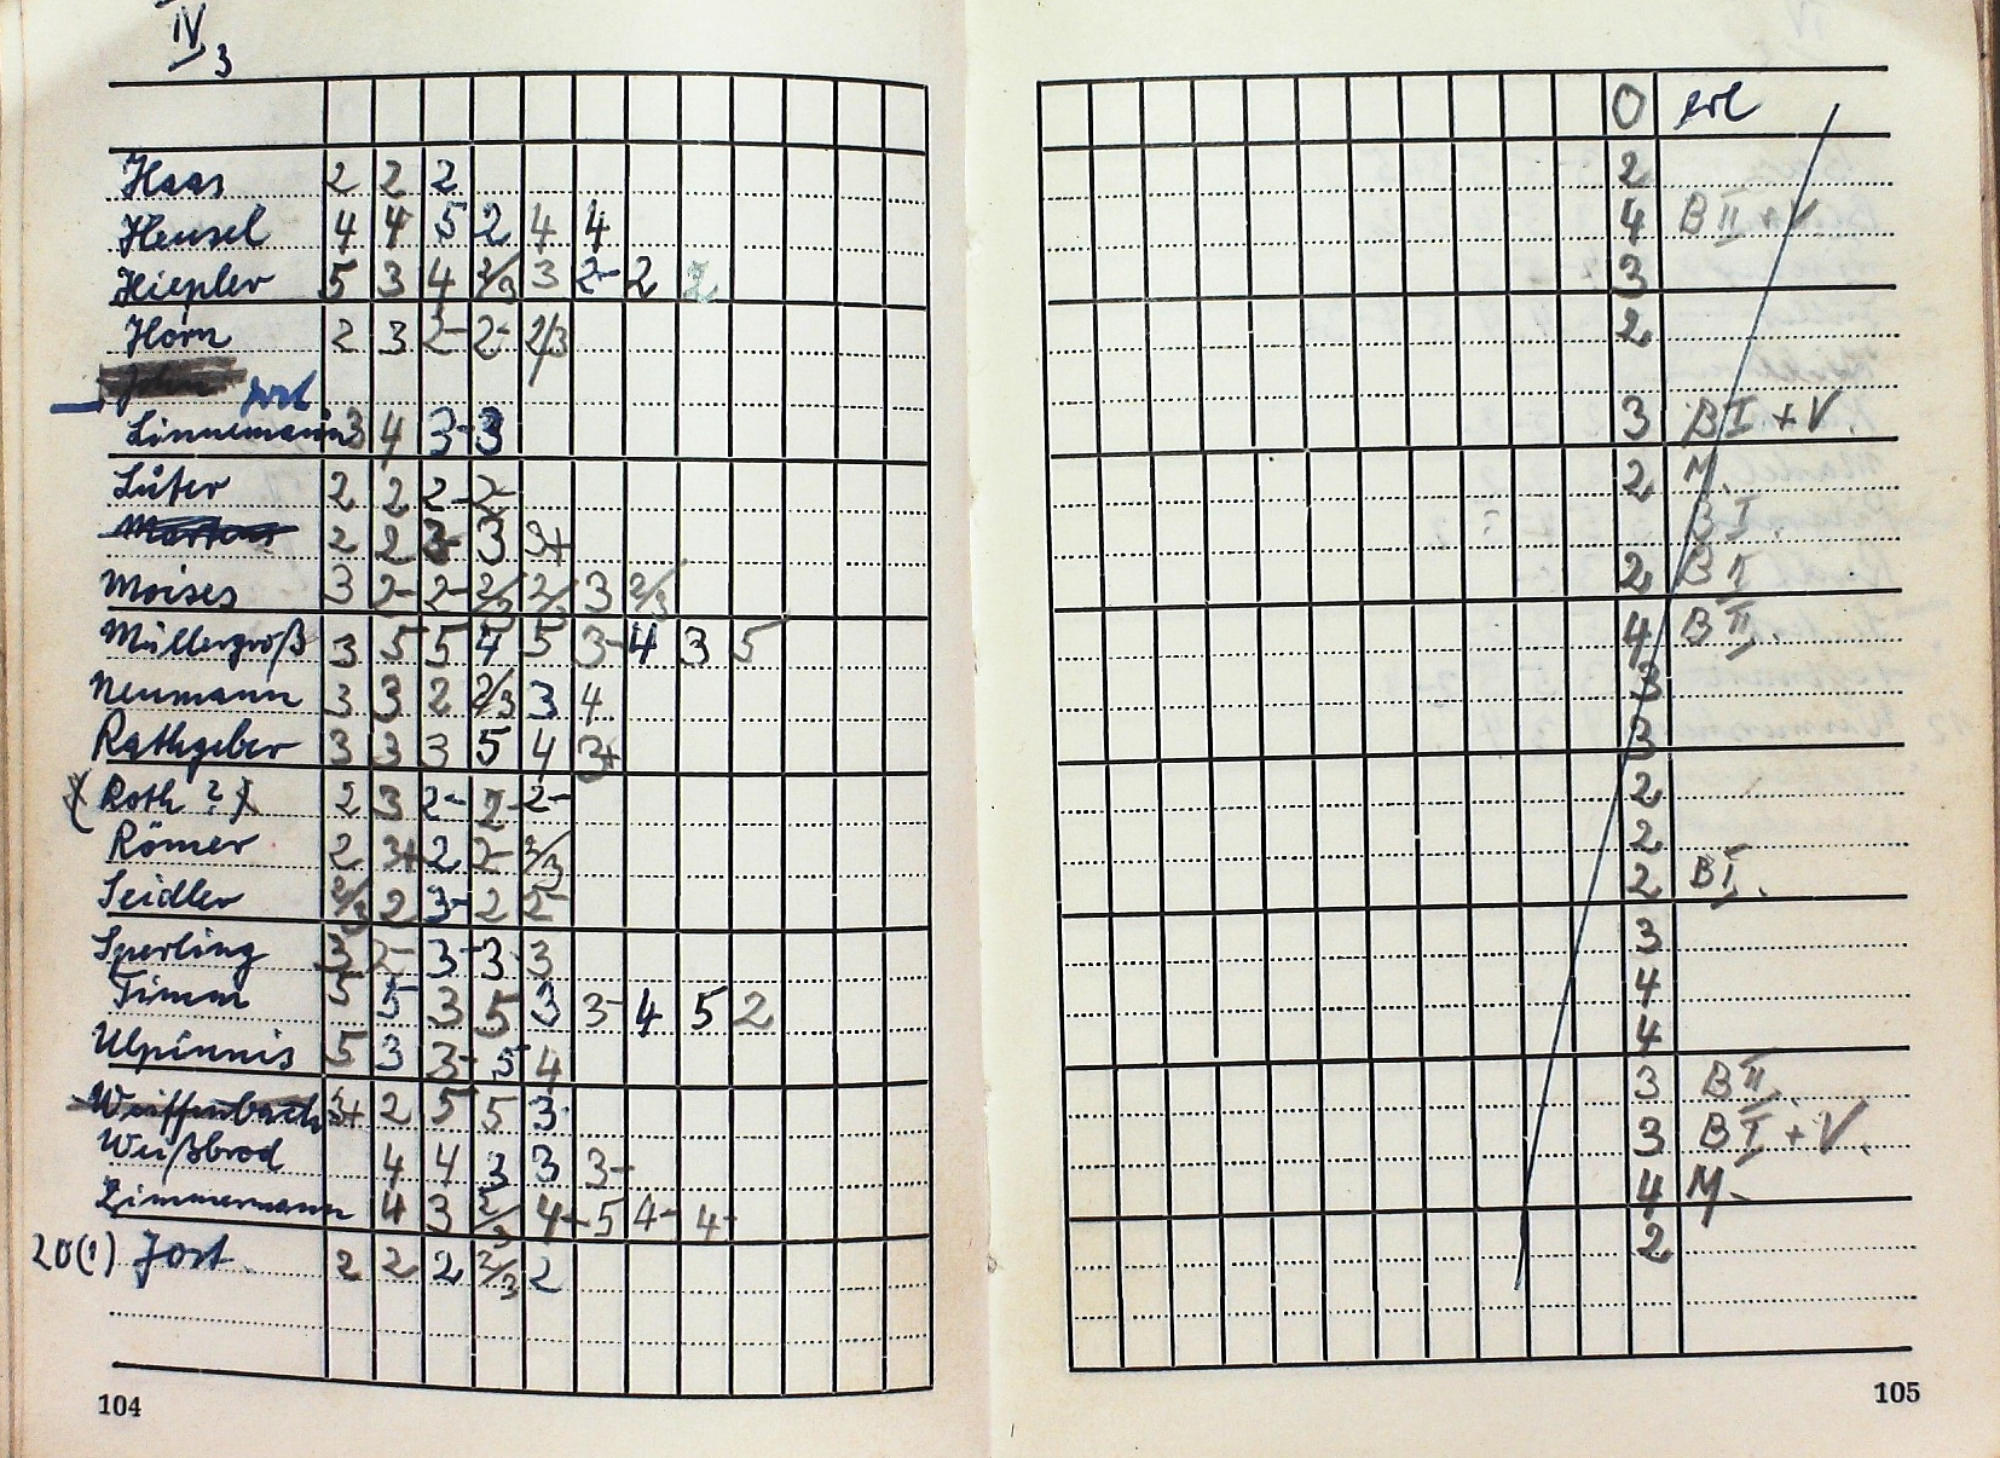 IV
3
Haas 2 2 2
Hensel 4 4 5 2 4 4
Hiepler 5 3 4 2/3 3 2- 2 2
Horn 2 3 2- 2- 2/3
John
Linnemann 3 4 3- 3
Lüter 2 2 2- 2-
2 2 3- 3 3+
Moises 3 2- 2- 2/3 2/3 3 2/3
Müllergroß 3 5 5 4 5 3- 4 3 5
Neumann 3 3 2 2/3 3 4
Rathgeber 3 3 3 5 4 3+
Roth ? 2 3 2- 2- 2-
Römer 2 3+ 2 2- 2/3
Seidler 2/3 2 3- 2 2-
Sperling 3 2- 3- 3 3
Timm 5 5 3 5 3 3- 4 5 2
Ulpinnis 5 3 3- 5 4
Weiffenbach 3+ 2 5 5 3
Weißbrod 4 4 3 3 3-
Zimmermann 4 3 2/3 4- 5 4- 4-
20(!) Jost 2 2 2 2/3 2
104
0 erl
2
4 B II + V
3
2
3 B I + V.
2 M.
B I.
2 B II
4 B II.
3
3
2
2
2 B I.
3
4
4
3 B II.
3 B I + V.
4 M-
2
105